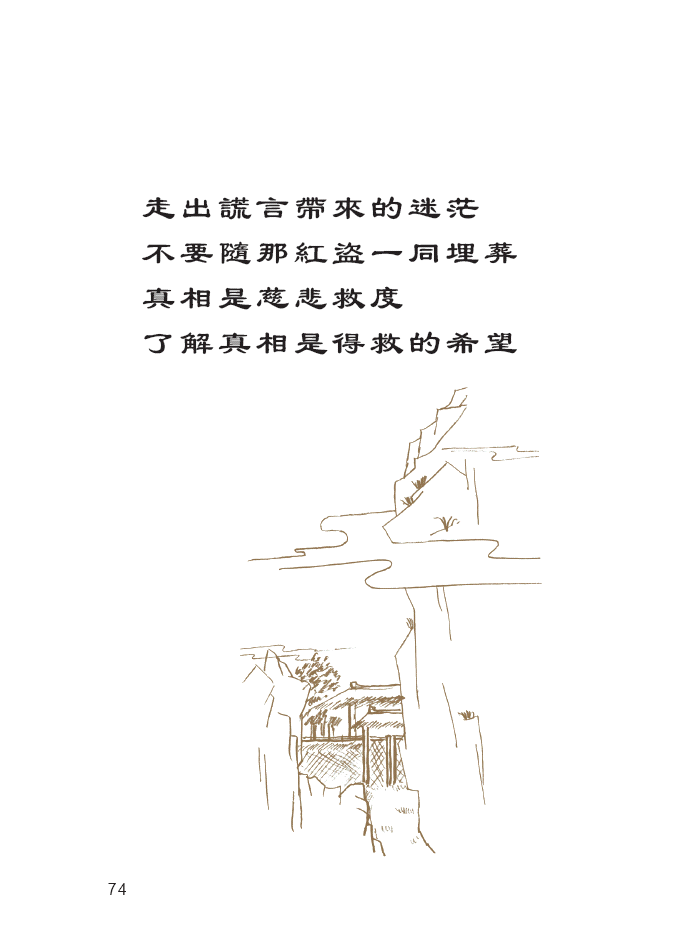 走出謊言帶來的迷茫
不要隨那紅盜一同埋葬
真相是慈悲救度
了解真相是得救的希望
74